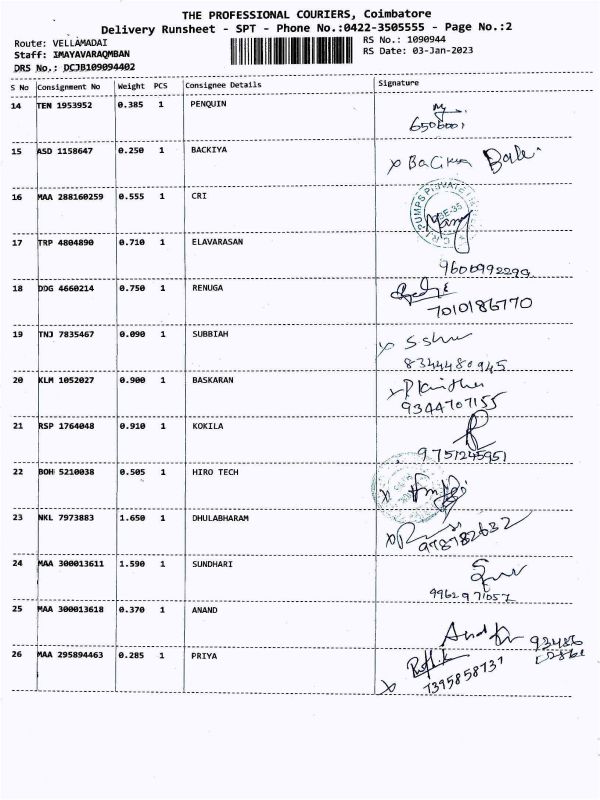 THE PROFESSIONAL COURIERS, Coimbatore
Delivery Runsheet - SPT - Phone No.:0422-3505555 - Page No.:2
Route: VELLAMADAI
RS No.: 1090944
Staff: IMAYAVARAQMBAN
RS Date: 03-Jan-2023
DRS No.: DCJB109094402
S No Consignment No Weight PCS Consignee Details Signature
14 TEN 1953952 0.385 1 PENQUIN
15 ASD 1158647 0.250 1 BACKIYA
16 MAA 288160259 0.555 1 CRI
17 TRP 4804890 0.710 1 ELAVARASAN
9600992299
18 DDG 4660214 0.750 1 RENUGA
7010186770
19 TNJ 7835467 0.090 1 SUBBIAH
8344480945
20 KLM 1052027 0.900 1 BASKARAN
9344707155
21 RSP 1764048 0.910 1 KOKILA
9751245951
22 BOH 5210038 0.505 1 HIRO TECH
23 NKL 7973883 1.650 1 DHULABHARAM
978782632
24 MAA 300013611 1.590 1 SUNDHARI
9962971057
25 MAA 300013618 0.370 1 ANAND
26 MAA 295894463 0.285 1 PRIYA
7395858731